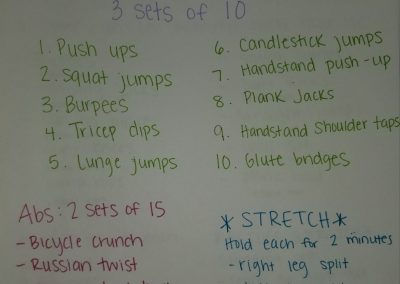 3 sets of 10
1. Push ups
2. Squat jumps
3. Burpees
4. Tricep dips
5. Lunge jumps
6. Candlestick jumps
7. Handstand push-up
8. Plank Jacks
9. Handstand Shoulder taps
10. Glute bridges
Abs: 2 sets of 15
- Bicycle crunch
- Russian twist
* STRETCH *
Hold each for 2 minutes
- right leg split